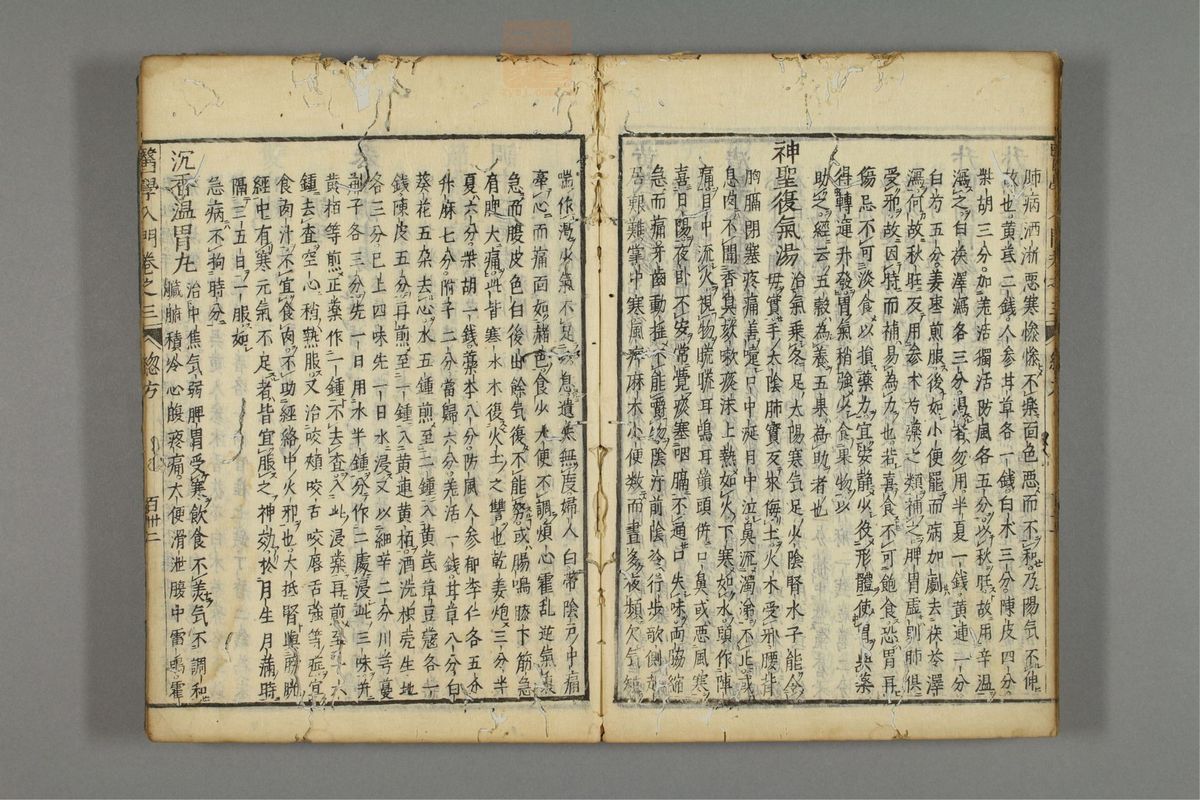 肺病洒淅惡寒慘慘不樂面色惡而不和乃陽気不伸
故也黄茋二錢人参甘草各一錢白朮三分陳皮四分
柴胡三分加羌活獨活防風各五分以秋旺故用辛温
瀉之白茯澤瀉各三分渴者勿用半夏一錢黄連一分
白芍五分姜枣煎服後如小便罷而病加劇去茯苓澤
瀉何故秋旺反用参朮芍藥之類補之脾胃虚則肺俱
受邪故因時而補易為力也若喜食不可飽食恐胃再
傷忌不可淡食以損藥力宜安静少役形體使胃與藥
得轉運升發胃氣稍強少食果物以
助之経云五穀為養五果為助者也
神聖復氣湯 治氣乗冬足太陽寒気足少陰腎水子能令
母實手太陰肺實反来侮土火木受邪腰背
胸膈閉塞疼痛善嚏口中涎目中泣鼻流濁涕不止或
息肉不聞香臭欬嗽痰沫上熱如火下寒如氷頭作陣
痛目中流火視物䀮䀮耳鳴耳聾頭併口鼻或悪風寒
喜日陽夜卧不安常覺痰塞咽膈不通口失味両脇縮
急而痛牙歯動揺不能嚼物陰汗前陰冷行歩欹側起
居艱難掌中寒風痺麻木小便数而晝多夜頻欠気短
喘作漸少気不足以息遺失無度婦人白帯陰户中痛
牽心而痛面如赭色食少大便不調煩心霍乱逆氣裏
急而腹皮色白後出餘気復不能努或腸鳴膝下筋急
有脾大痛此皆寒水木復火土之讐也乾姜炮三分半
夏六分柴胡一錢藁本八分防風人参郁李仁各五分
升麻七分附子二分當歸六分羌活一錢甘草八分白
葵花五朶去心水五鍾煎至二鍾入黄茋草豆蔻各一
錢陳皮五分再煎至一鍾入黄連黄栢酒洗枳壳生地
各三分已上四味先一日水浸又以細辛二分川芎蔓
荊子各三分先一日用水半鍾分作二處浸此三味并
黄栢等煎正薬作一鍾不去查入此浸藥再煎至一大
鍾去查空心稍熱服又治咬頬咬舌咬唇舌強等症宜
食肉汁不宜食肉不助経絡中火邪也大抵腎與膀胱
経中有寒元氣不足者皆宜服之神効於月生月満時
隔三五日一服如
急病不拘時分
沉香温胃丸 治中焦気弱脾胃受寒飲食不美気不調和
臟腑積冷心腹疼痛大便滑泄腹中雷鳴霍
醫學入門卷之三 總方 百卅二